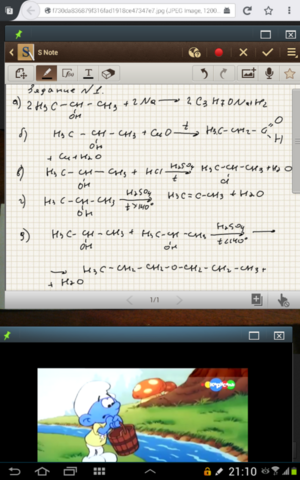 f738da836879f316fad1918ce47347e7.jpg (JPEG Image, 1200...
S Note
Задание N1.
а) 2H₃C – CH – CH₃ + 2Na ⟶ 2C₃H₇ONa + H₂
OH
б) H₃C – CH – CH₃ + CuO →(t) H₃C – CH₂ – C =O –H
OH
+ Cu + H₂O
в) H₃C – CH – CH₃ + HCl →(H₂SO₄, t) H₃C – CH – CH₃ + H₂O
OH Cl
г) H₃C – CH – CH₃ →(H₂SO₄, t>140°) H₂C = C – CH₃ + H₂O
OH
д) H₃C – CH – CH₃ + H₃C – CH – CH₃ →(H₂SO₄, t<140°) ⟶
OH OH
⟶ H₃C – CH₂ – CH₂ – O – CH₂ – CH₂ – CH₃ +
+ H₂O
1/1
21:10